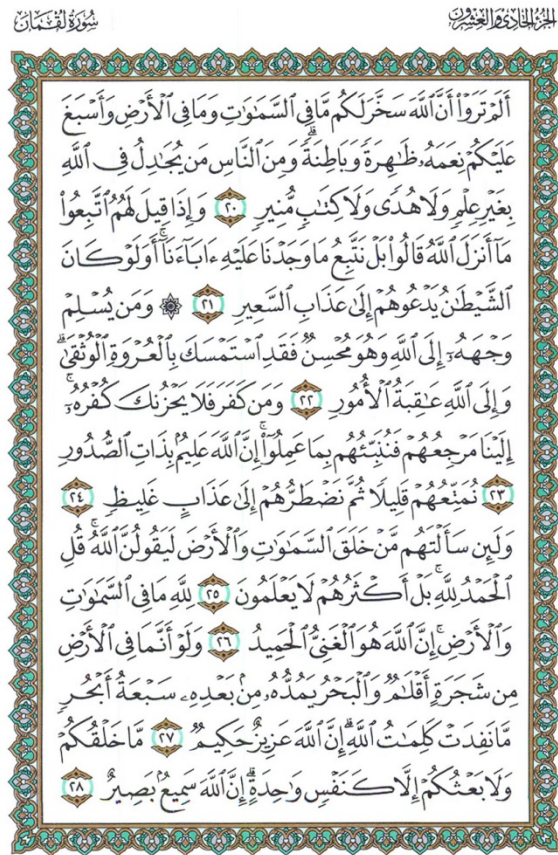 الجزء الحادي والعشرون
سورة لقمان
أَلَمْ تَرَوْا۟ أَنَّ ٱللَّهَ سَخَّرَ لَكُم مَّا فِى ٱلسَّمَـٰوَٰتِ وَمَا فِى ٱلْأَرْضِ وَأَسْبَغَ
عَلَيْكُمْ نِعَمَهُۥ ظَـٰهِرَةً وَبَاطِنَةً ۗ وَمِنَ ٱلنَّاسِ مَن يُجَـٰدِلُ فِى ٱللَّهِ
بِغَيْرِ عِلْمٍ وَلَا هُدًى وَلَا كِتَـٰبٍ مُّنِيرٍ ٢٠ وَإِذَا قِيلَ لَهُمُ ٱتَّبِعُوا۟
مَآ أَنزَلَ ٱللَّهُ قَالُوا۟ بَلْ نَتَّبِعُ مَا وَجَدْنَا عَلَيْهِ ءَابَآءَنَآ ۚ أَوَلَوْ كَانَ
ٱلشَّيْطَـٰنُ يَدْعُوهُمْ إِلَىٰ عَذَابِ ٱلسَّعِيرِ ٢١ ۞ وَمَن يُسْلِمْ
وَجْهَهُۥٓ إِلَى ٱللَّهِ وَهُوَ مُحْسِنٌ فَقَدِ ٱسْتَمْسَكَ بِٱلْعُرْوَةِ ٱلْوُثْقَىٰ ۗ
وَإِلَى ٱللَّهِ عَـٰقِبَةُ ٱلْأُمُورِ ٢٢ وَمَن كَفَرَ فَلَا يَحْزُنكَ كُفْرُهُۥٓ ۚ
إِلَيْنَا مَرْجِعُهُمْ فَنُنَبِّئُهُم بِمَا عَمِلُوٓا۟ ۚ إِنَّ ٱللَّهَ عَلِيمٌۢ بِذَاتِ ٱلصُّدُورِ
٢٣ نُمَتِّعُهُمْ قَلِيلًا ثُمَّ نَضْطَرُّهُمْ إِلَىٰ عَذَابٍ غَلِيظٍ ٢٤
وَلَئِن سَأَلْتَهُم مَّنْ خَلَقَ ٱلسَّمَـٰوَٰتِ وَٱلْأَرْضَ لَيَقُولُنَّ ٱللَّهُ ۚ قُلِ
ٱلْحَمْدُ لِلَّهِ ۚ بَلْ أَكْثَرُهُمْ لَا يَعْلَمُونَ ٢٥ لِلَّهِ مَا فِى ٱلسَّمَـٰوَٰتِ
وَٱلْأَرْضِ ۚ إِنَّ ٱللَّهَ هُوَ ٱلْغَنِىُّ ٱلْحَمِيدُ ٢٦ وَلَوْ أَنَّمَا فِى ٱلْأَرْضِ
مِن شَجَرَةٍ أَقْلَـٰمٌ وَٱلْبَحْرُ يَمُدُّهُۥ مِنۢ بَعْدِهِۦ سَبْعَةُ أَبْحُرٍ
مَّا نَفِدَتْ كَلِمَـٰتُ ٱللَّهِ ۗ إِنَّ ٱللَّهَ عَزِيزٌ حَكِيمٌ ٢٧ مَّا خَلْقُكُمْ
وَلَا بَعْثُكُمْ إِلَّا كَنَفْسٍ وَٰحِدَةٍ ۗ إِنَّ ٱللَّهَ سَمِيعٌۢ بَصِيرٌ ٢٨